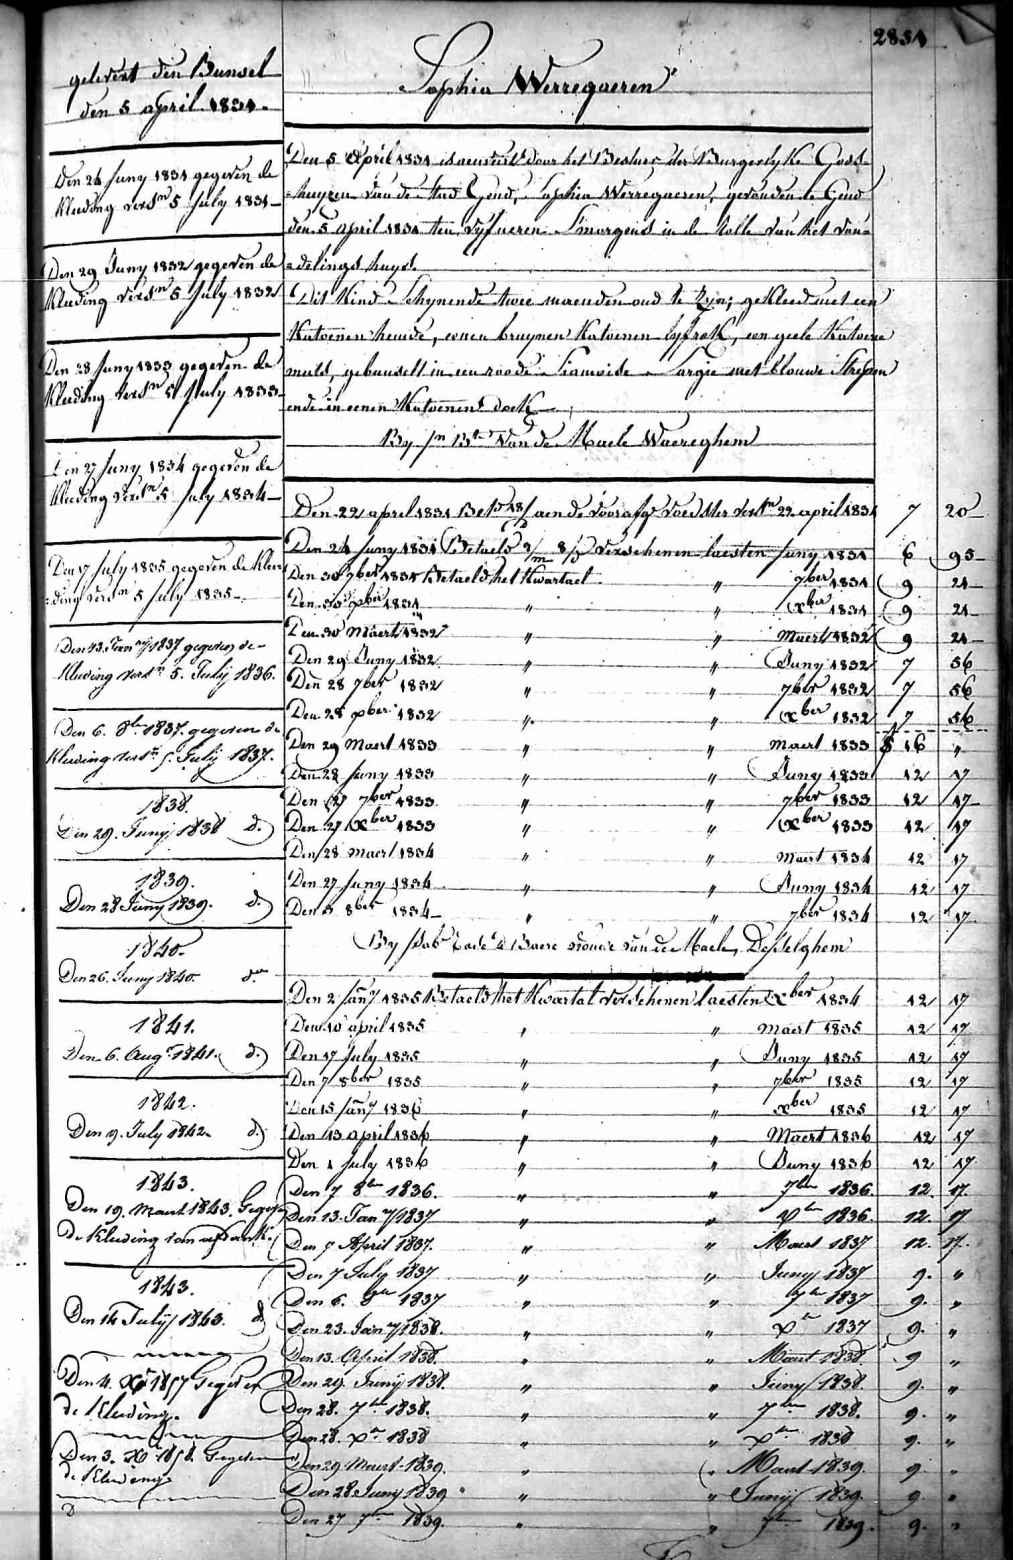 2854
Sophia Werregaeren
gelevert den Bunsel
den 5 april 1831.
Den 24 Juny 1831 gegeven de
Kleeding versn 5 July 1831
Den 29 Juny 1832 gegeven de
Kleeding versn 5 July 1832
Den 28 Juny 1833 gegeven de
Kleeding versn 5 July 1833
Den 27 Juny 1834 gegeven de
Kleeding versn 5 July 1834
Den 17 July 1835 gegeven de Klee
ding versn 5 July 1835
Den 13. Janry 1837 gegeven de
Kleeding versn 5. July 1836.
Den 6. 8br 1837. gegeven de
Kleeding versn 5. July 1837.
1838.
Den 29. Juny 1838 d.
1839.
Den 28 Juny 1839. d.
1840.
Den 26. Juny 1840. do
1841.
Den 6. Augt 1841. d.
1842.
Den 9. July 1842. d.
1843.
Den 19. Maert 1843. Gegeven
de Kleeding
1843.
Den 14 July 1843. d
Den 4. Xbr 1857 Gegeven
de Kleeding.
Den 3. Xbr 1858. Gegeven
de Kleeding
Den 5 April 1831 is door het Bestuer der Burgerlyke Gods
huyzen van de stad Gend, Sophia Werregaeren, gevonden te Gend
den 5 april 1831 ten vyf ueren Smorgens in de rolle van het von
delings huys.
Dit Kind schynende twee maenden oud te zyn; gekleed met een
Katoenen hemde, eenen bruynen Katoenen lyfrok, een geele Katoene
muts, gebunselt in een roode Siamoise Sargie met blouwe Strepen
ende in eenen Katoenen doek
By Jn Bte Van de Maele Waereghem
Den 22 april 1831 aen de voorafge voedster versn 22 april 1831 7 20
Den 24 Juny 1831 Betaeld verschenen laesten Juny 1831 6 95
Den 30 7ber 1831 Betaeld het Kwartael " 7ber 1831 9 24
Den 30 xber 1831 " " xber 1831 9 24
Den 30 Maert 1832 " " Maert 1832 9 24
Den 29 Juny 1832 " " Juny 1832 7 56
Den 28 7ber 1832 " " 7ber 1832 7 56
Den 28 xber 1832 " " xber 1832 7 56
Den 29 Maert 1833 " " maert 1833 16 "
Den 28 Juny 1833 " " Juny 1833 12 17
Den 27 7ber 1833 " " 7ber 1833 12 17
Den 27 xber 1833 " " xber 1833 12 17
Den 28 maert 1834 " " maert 1834 12 17
Den 27 Juny 1834 " " Juny 1834 12 17
Den 3 8ber 1834 " " 7ber 1834 12 17
By de Baere weduwe van de Maele, Desselghem
Den 2 Jany 1835 Betaeld het Kwartal verschenen laesten xber 1834 12 17
Den 10 april 1835 " " maert 1835 12 17
Den 17 July 1835 " " Juny 1835 12 17
Den 7 8ber 1835 " " 7ber 1835 12 17
Den 15 Jany 1836 " " xber 1835 12 17
Den 13 april 1836 " " Maert 1836 12 17
Den 1 July 1836 " " Juny 1836 12 17
Den 7 8br 1836. " " 7br 1836. 12. 17.
Den 13. Jany 1837 " " Xbr 1836. 12. 17
Den 7 April 1837. " " Maert 1837 12. 17.
Den 7 July 1837 " " Juny 1837 9. "
Den 6. 8br 1837 " " 7br 1837 9. "
Den 23. Jany 1838. " " Xbr 1837 9. "
Den 13. April 1838. " " Maert 1838. 9 "
Den 29. Juny 1838. " " Juny 1838. 9. "
Den 28. 7br 1838. " " 7br 1838. 9. "
Den 28. Xbr 1838 " " Xbr 1838 9. "
Den 29 Maert 1839. " " Maert 1839. 9. "
Den 28 Juny 1839 " " Juny 1839. 9. "
Den 27 7br 1839. " " 7br 1839. 9. "